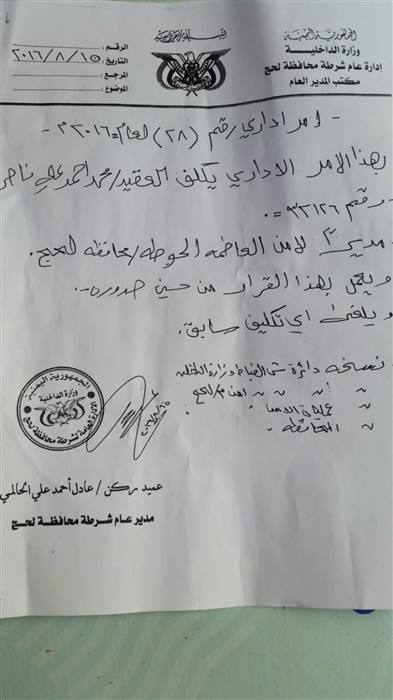 الجمهورية اليمنية
وزارة الداخلية
إدارة عام شرطة محافظة لحج
مكتب المدير العام
بسم الله الرحمن الرحيم
الرقم :
التاريخ : ٢٠١٦/٨/١٥
المرجع :
الموضوع :
- امر اداري رقم (٢٨) لعام ٢٠١٦م -
بهذا الامر الاداري يكلف العقيد / محمد احمد علي ناصر
- رقم ٩٣١٢٦ =
مديراً لأمن العاصمة الحوطة / محافظة لحج.
ويعمل بهذا القرار من حين صدوره -
ويلغى اي تكليف سابق.
نسخه دائرة وزارة الداخلية
〃 〃 〃 امن م/لحج
〃
〃 المحافظة -
الجمهورية اليمنية
وزارة الداخلية
الإدارة العامة لشرطة محافظة لحج
٢٠١٦/٨/١٥
عميد ركن / عادل أحمد علي الحالمي
مدير عام شرطة محافظة لحج